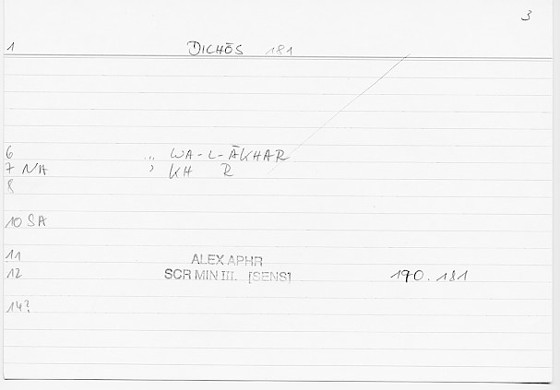 3
1 DICHŌS 181
6 „ WA-L-ĀKHAR
7 NA , KH R
8
10 SA
11 ALEX APHR
12 SCR MIN III. [SENS] 190.181
14?